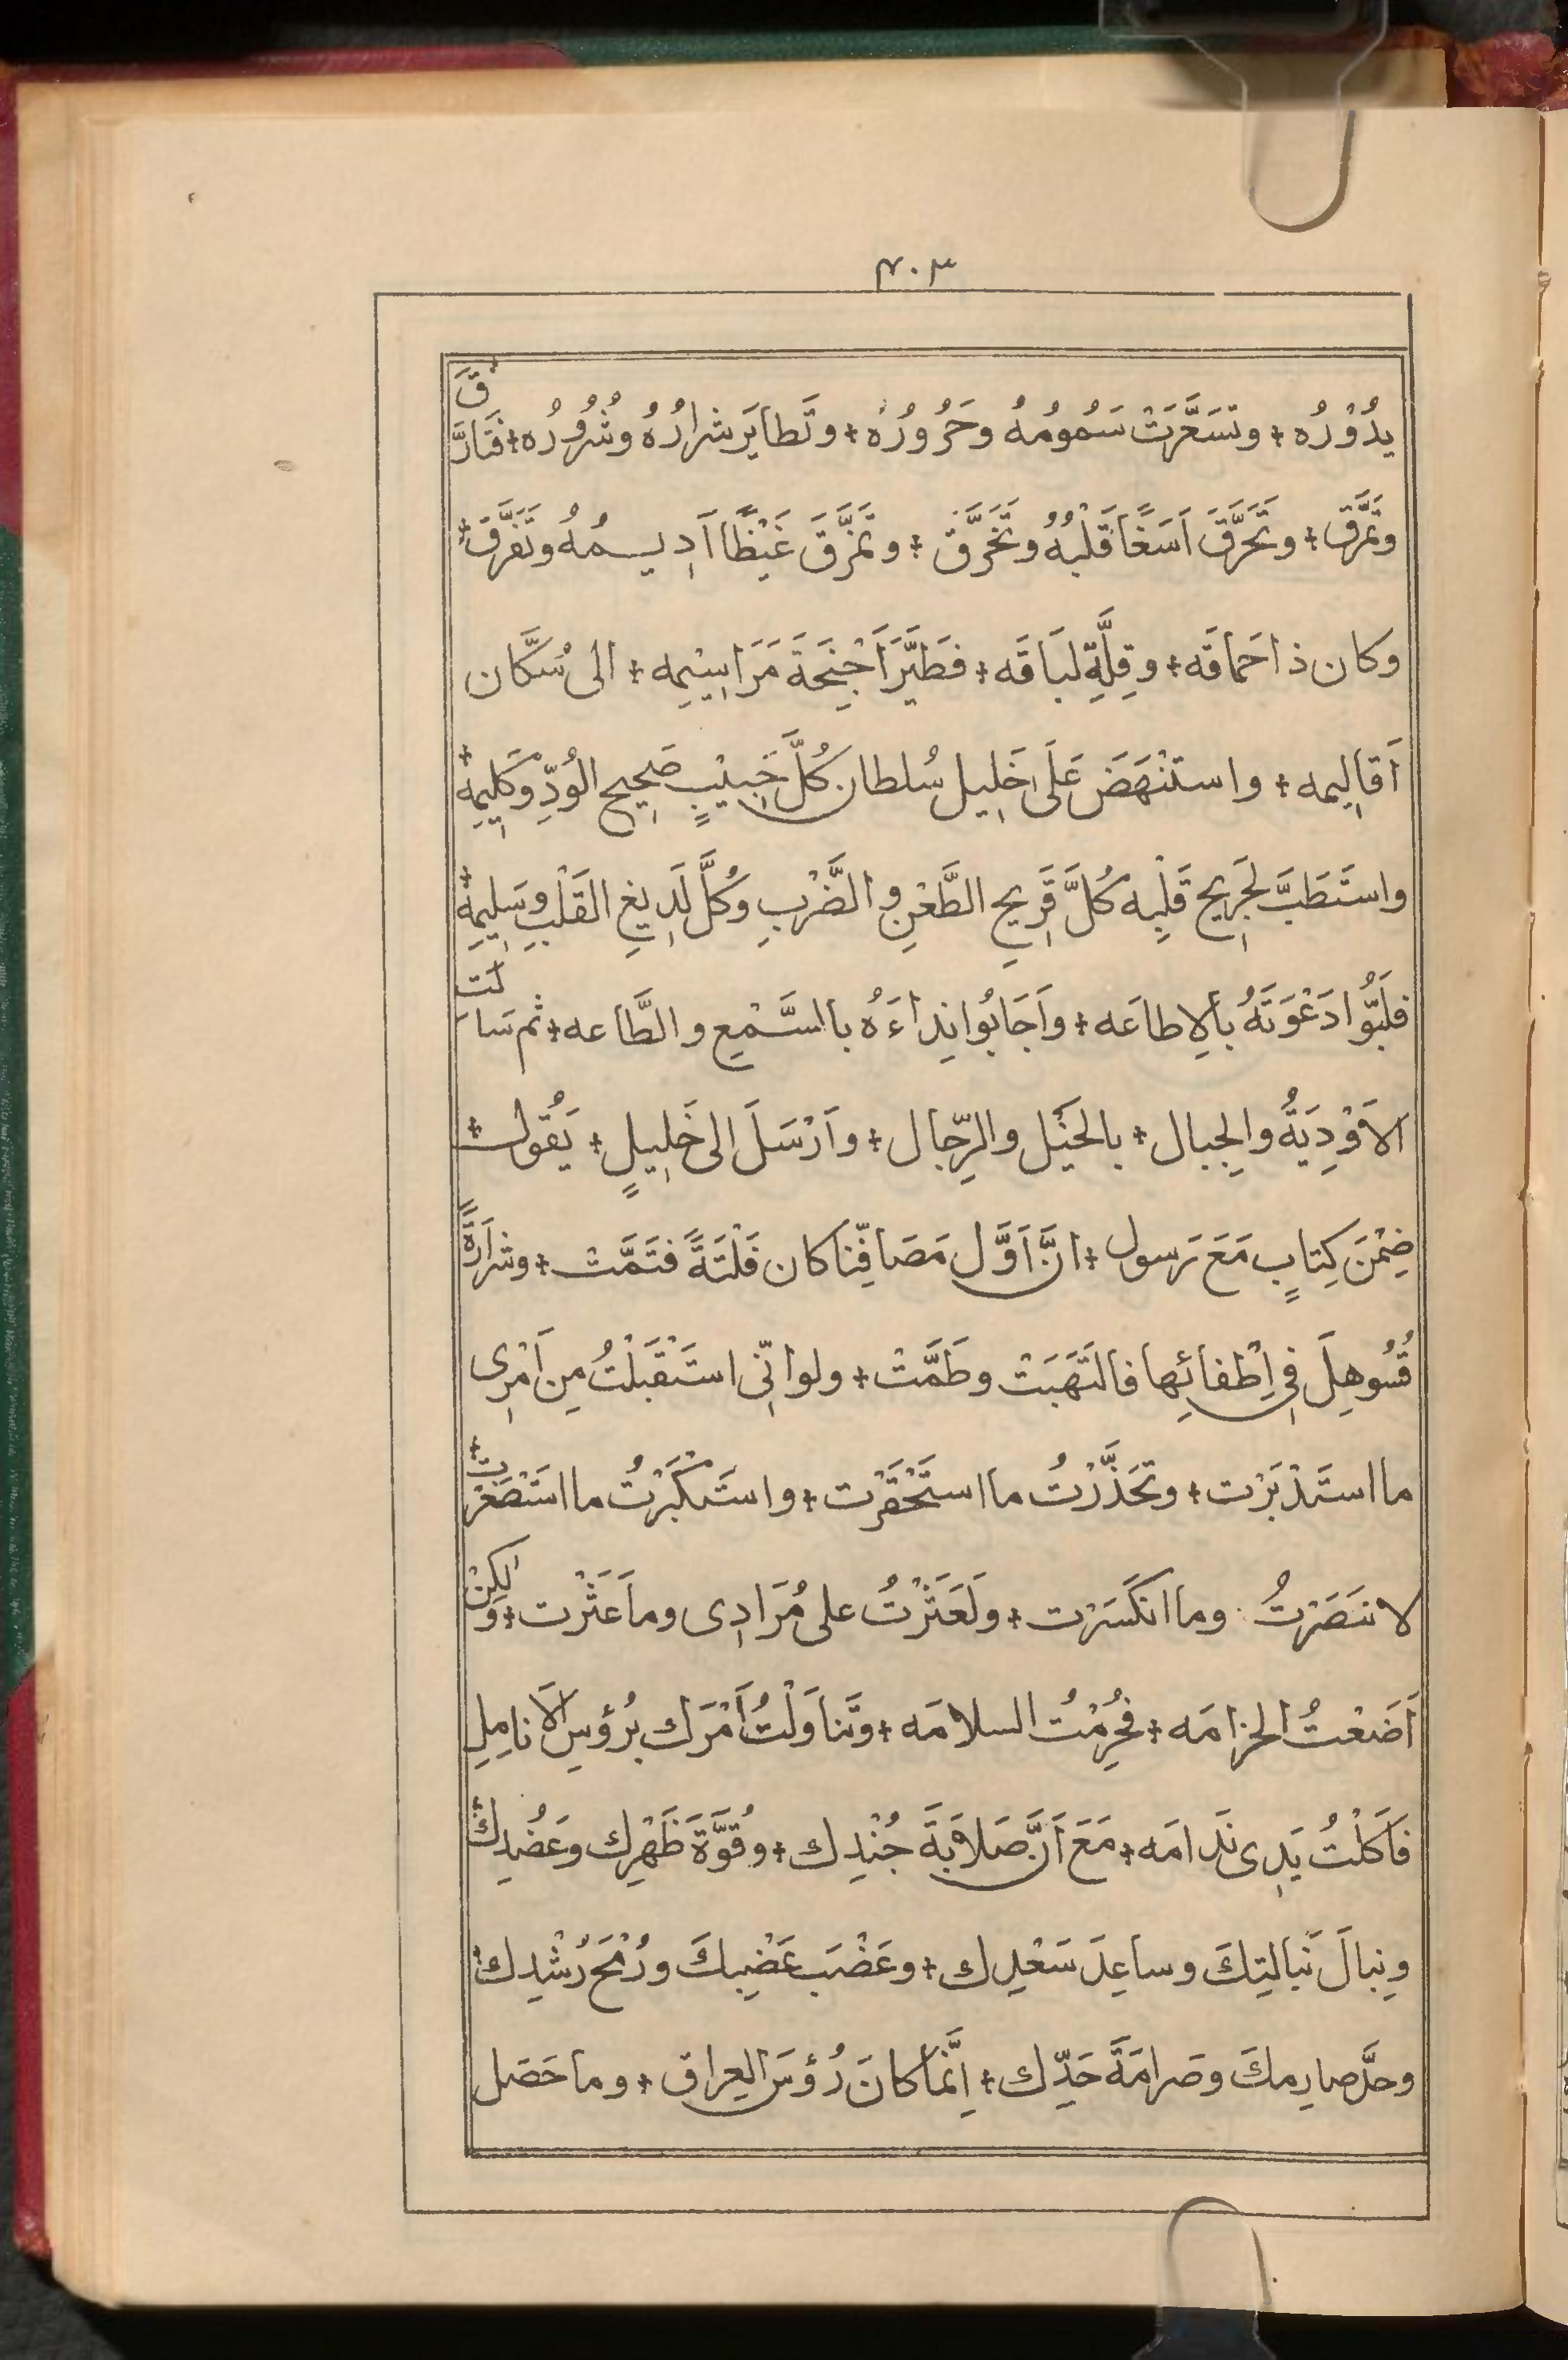 ٣٠٣
يدُوْرُه + وتسَعَّرَتْ سَمُومُهُ وحَرُورُهُ + وتَطايَر شرارُهُ وشُرُورُه + فَتَارَّقَ
وتمَرَّقَ + وتَحَرَّقَ اَسَفًا قَلْبُهُ وتَخَرَّق + وتمَزَّقَ غَيْظًا اَدِيمُهُ وتَفَرَّقَ +
وكان ذا حَماقَه + وقِلَّةِ لبَاقَه + فطَيَّرَ اَجْنِحَةَ مَرَاسِيْمِه + الى سُكَّان
اَقالِيمه + واستَنْهَضَ عَلَى خَلِيل سُلطان كُلَّ حَبِيْبٍ صَحِيحِ الوُدِّ وَكَلِيمِهْ +
واستَطَبَّ لجَرِيح قَلبِه كُلَّ قَرِيحِ الطَّعْنِ والضَّرْبِ وكُلَّ لَدِيغِ القَلْبِ وسَلِيمِهْ +
فلَبَّوُا دَعْوَتَهُ بالاِطاعَه + واَجَابُوا نِداءَهُ بالسَّمْعِ والطَّاعه + ثم سَالت
الاَوْدِيَةُ والجِبال + بالخَيْل والرِّجال + واَرْسَلَ الى خَلِيلٍ + يَقُول +
ضِمْنَ كِتابٍ مَعَ رَسول + انَّ اَوَّل مَصَافِّنا كان فَلْتَةً فتَمَّتْ + وشَرارَةً
قُسُوهِلَ فى اِطْفائِها فالتَهَبَتْ وطَمَّتْ + ولو انِّى استَقْبَلْتُ مِن اَمْرِى
ما استَدْبَرْت + وتَحَذَّرْتُ ما استَحْقَرْت + واستَكْبَرْتُ ما استَصْغَرْت +
لانتَصَرْتُ وما انكَسَرْت + ولَعَثَرْتُ على مُرَادِى وما عَثَرْت + ولكِنْ
اَضَعْتُ الحزامَه + فحُرِمْتُ السلامَه + وتَناوَلْتُ اَمْرَك برُؤسِ الاَنامِلِ
فَاَكَلْتُ يَدِى نَدامَه + مَعَ اَنَّ صَلابَةَ جُنْدِك + وقُوَّةَ ظَهْرِك وعَضُدِك +
ونِبالَ نَبالتِكَ وساعِدَ سَعْدِك + وعَضْبَ عَضْبِكَ ورُمْحَ رُشْدِك +
وحَدَّ صارِمِكَ وصَرامَةَ حَدِّك + اِنَّما كانَ رُؤسَ العِراق + وما حَصَل